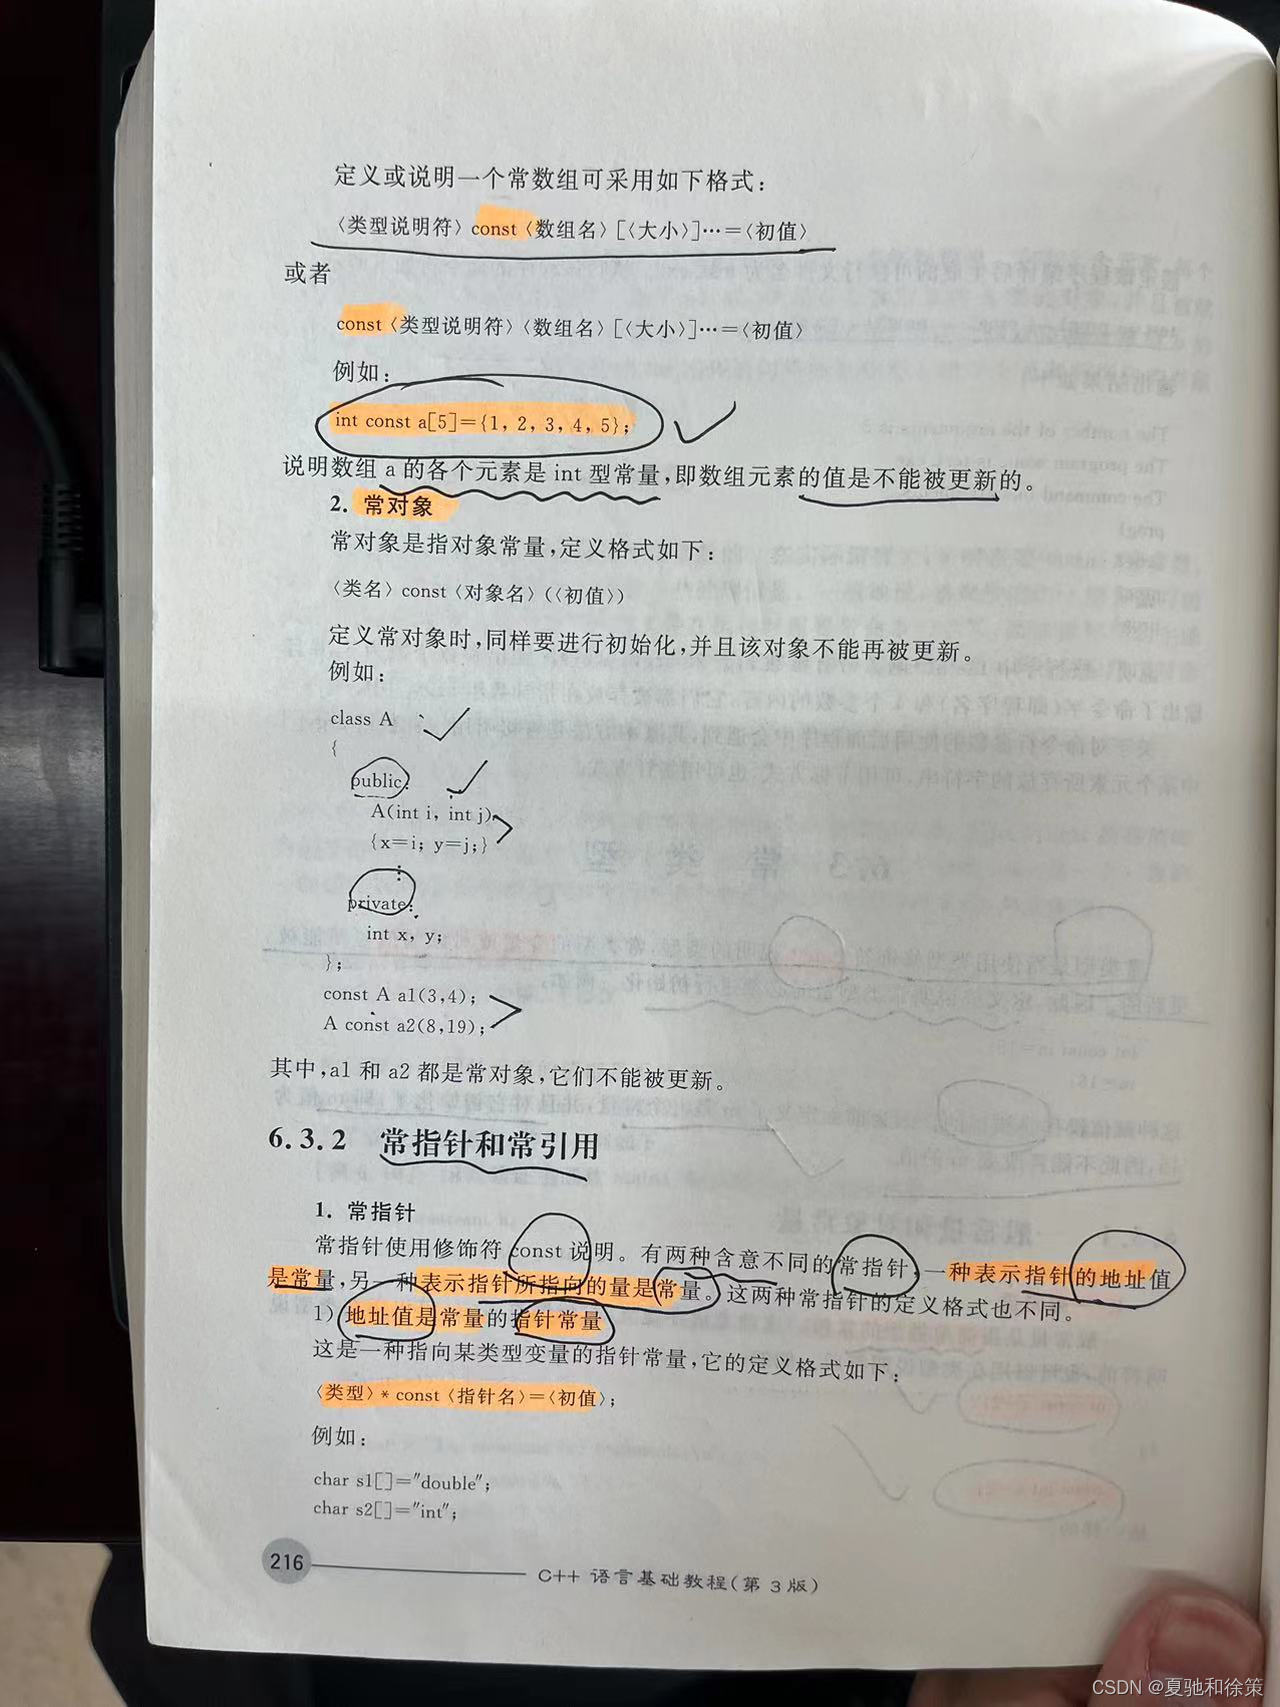 定义或说明一个常数组可采用如下格式:
〈类型说明符〉const〈数组名〉[〈大小〉]…=〈初值〉
或者
const〈类型说明符〉〈数组名〉[〈大小〉]…=〈初值〉
例如:
int const a[5]={1, 2, 3, 4, 5};
说明数组 a 的各个元素是 int 型常量,即数组元素的值是不能被更新的。
2. 常对象
常对象是指对象常量,定义格式如下:
〈类名〉const〈对象名〉(〈初值〉)
定义常对象时,同样要进行初始化,并且该对象不能再被更新。
例如:
class A
{
public:
A(int i, int j)
{x=i; y=j;}
⋮
private:
int x, y;
};
const A a1(3,4);
A const a2(8,19);
其中,a1 和 a2 都是常对象,它们不能被更新。
6.3.2 常指针和常引用
1. 常指针
常指针使用修饰符 const 说明。有两种含意不同的常指针,一种表示指针的地址值
是常量,另一种表示指针所指向的量是常量。这两种常指针的定义格式也不同。
1) 地址值是常量的指针常量
这是一种指向某类型变量的指针常量,它的定义格式如下:
〈类型〉* const〈指针名〉=〈初值〉;
例如:
char s1[]="double";
char s2[]="int";
216 C++ 语言基础教程(第 3 版)
CSDN @夏驰和徐策